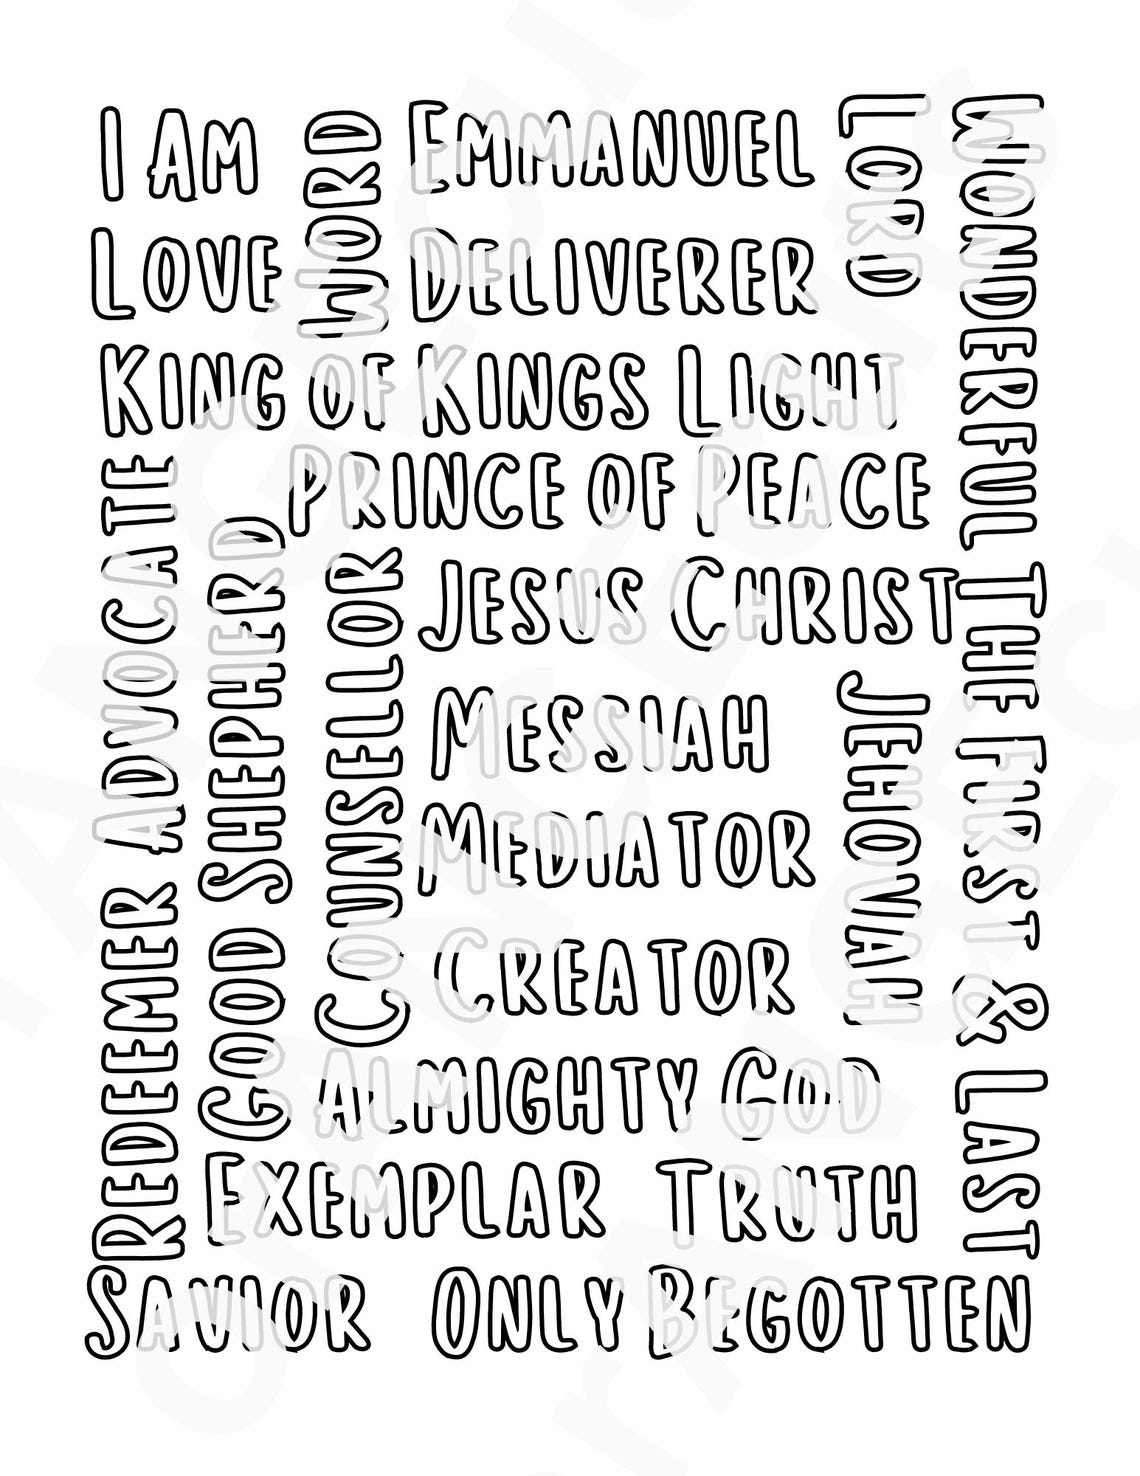 I Am
Word
Emmanuel
Lord
Wonderful
Love
Deliverer
King of Kings
Light
Prince of Peace
Advocate
Good Shepherd
Counsellor
Jesus Christ
The First & Last
Messiah
Jehovah
Mediator
Redeemer
Creator
Almighty God
Exemplar
Truth
Savior
Only Begotten